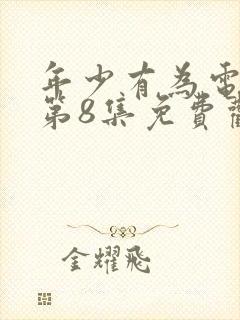 年少有為電
第8集免費
金耀飛